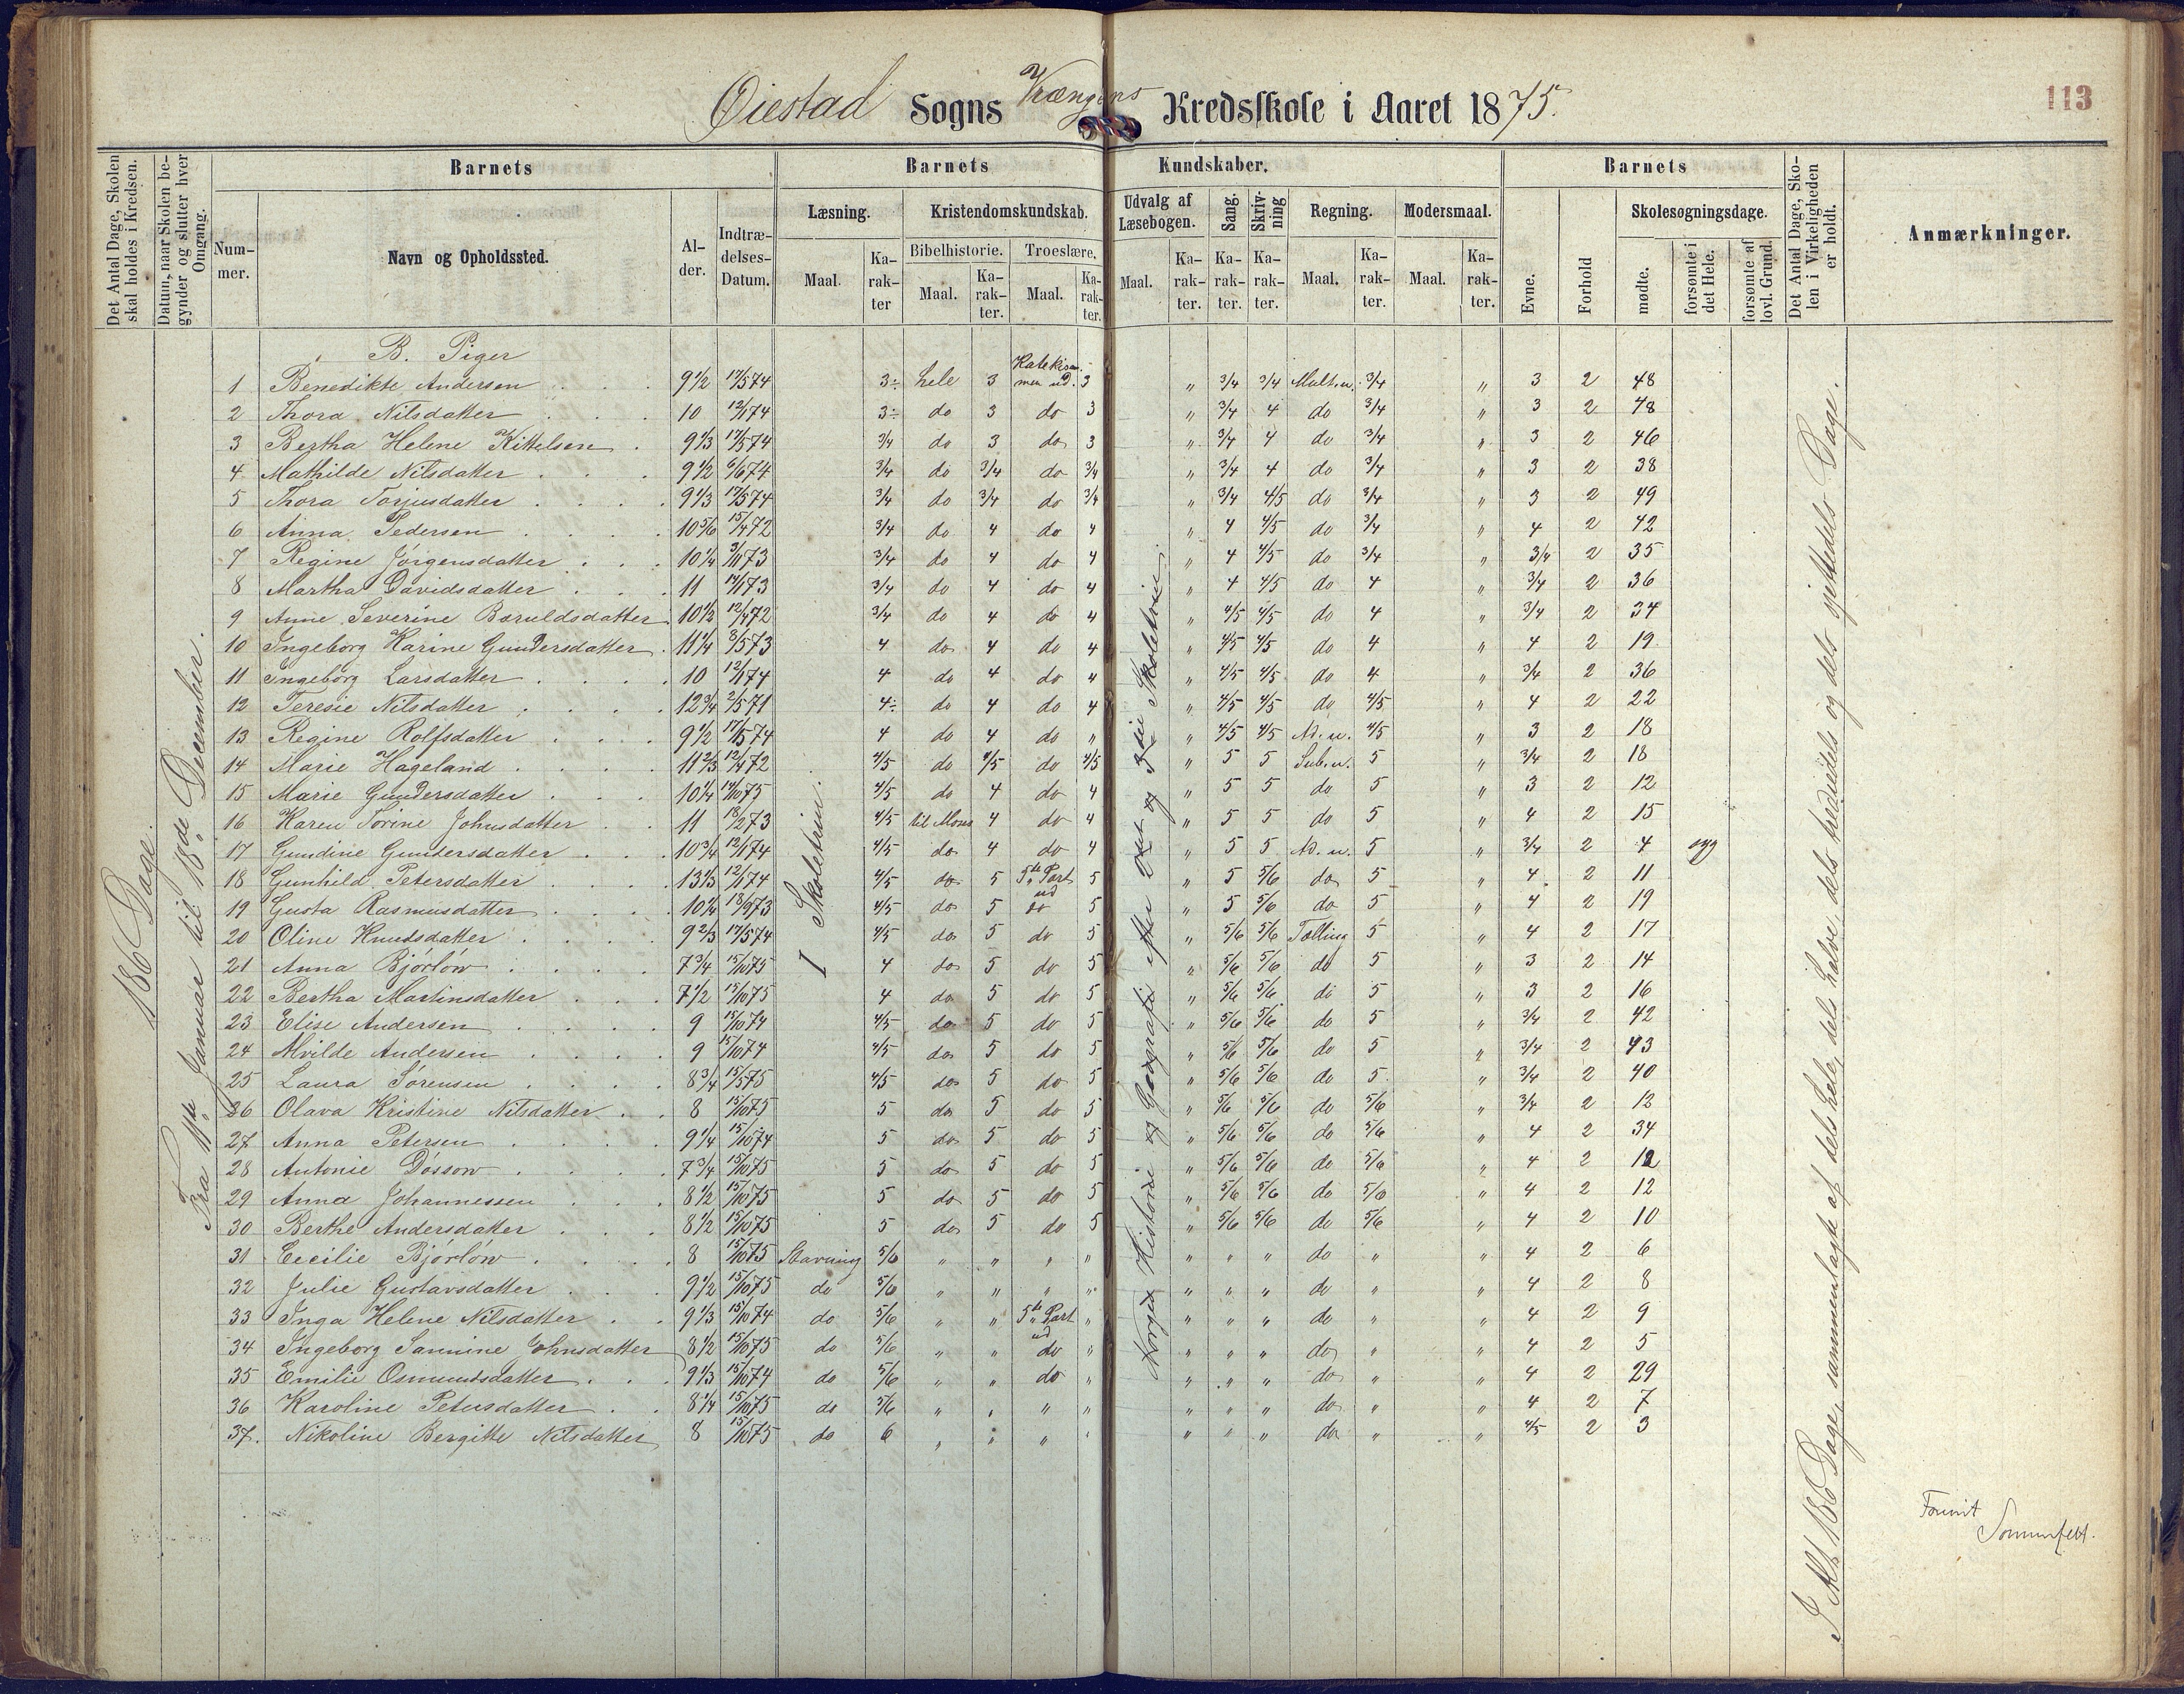 Øiestad Sogns Vrængens Kredsskole i Aaret 1875.
113
Det Antal Dage, Skolen skal holdes i Kredsen.
Datum, naar Skolen begynder og slutter hver Omgang.
Barnets
Barnets Kundskaber.
Barnets
Det Antal Dage, Skolen i Virkeligheden er holdt.
Anmærkninger.
Nummer.
Navn og Opholdssted.
Alder.
Indtrædelses-Datum.
Læsning.
Kristendomskundskab.
Udvalg af Læsebogen.
Sang.
Skrivning
Regning.
Modersmaal.
Evne.
Forhold
Skolesøgningsdage.
Bibelhistorie.
Troeslære.
Maal.
Karakter
Maal.
Karakter.
Maal.
Karakter.
Maal.
Karakter.
Karakter.
Karakter.
Maal.
Karakter.
Maal.
Karakter.
mødte.
forsømte i det Hele.
forsømte af lovl. Grund.
186 Dage.
Fra 11te Januar til 18de December.
I Skoletrin.
Norges Historie og Geografi efter 2det og 3die Skoletrin.
I Alt 186 Dage, sammenlagte af dels hele, dels halve, dels trediedels og dels sjettedels Dage.
B. Piger
1 Benedikte Andersen 9 1/2 17/5 74 3÷ hele 3 Katekismen ud. 3 " 3/4 3/4 Mult.n. 3/4 " 3 2 48
2 Thora Nilsdatter 10 12/1 74 3÷ do 3 do 3 " 3/4 4 do 3/4 " 3 2 48
3 Bertha Helene Kittelsen 9 1/3 17/5 74 3/4 do 3 do 3 " 3/4 4 do 3/4 " 3 2 46
4 Mathilde Nilsdatter 9 1/2 6/6 74 3/4 do 3/4 do 3/4 " 3/4 4 do 3/4 " 3 2 38
5 Thora Torjusdatter 9 1/3 17/5 74 3/4 do 3/4 do 3/4 " 3/4 4/5 do 3/4 " 3 2 49
6 Anna Pedersen 10 5/6 15/4 72 3/4 do 4 do 4 " 4 4/5 do 3/4 " 4 2 42
7 Regine Jörgensdatter 10 1/4 3/11 73 3/4 do 4 do 4 " 4 4/5 do 3/4 " 3/4 2 35
8 Martha Davidsdatter 11 14/1 73 3/4 do 4 do 4 " 4 4/5 do 4 " 3/4 2 36
9 Anne Severine Baruldsdatter 10 1/2 12/4 72 3/4 do 4 do 4 " 4/5 4/5 do 4 " 3/4 2 34
10 Ingeborg Karine Gundersdatter 11 1/4 8/5 73 4 do 4 do 4 " 4/5 4/5 do 4 " 4 2 19
11 Ingeborg Larsdatter 10 12/1 74 4 do 4 do 4 " 4/5 4/5 do 4 " 3/4 2 36
12 Teresie Nilsdatter 12 3/4 2/5 71 4÷ do 4 do 4 " 4/5 4/5 do 4/5 " 4 2 22
13 Regine Rolfsdatter 9 1/2 17/5 74 4 do 4 do " " 4/5 4/5 Ad.n. 4/5 " 3 2 18
14 Marie Hageland 11 2/3 12/4 72 4/5 do 4/5 do 4/5 " 5 5 Sub.n. 5 " 3/4 2 18
15 Marie Gundersdatter 10 1/4 14/10 75 4/5 do 4 do 4 " 5 5 do 5 " 3 2 12
16 Karen Torine Johnsdatter 11 18/2 73 4/5 til Moses 4 do 4 " 5 5 do 5 " 4 2 15
17 Gundine Gundersdatter 10 3/4 12/1 74 4/5 do 4 do 4 " 5 5 Ad.n. 5 " 3/4 2 4 syg
18 Gunhild Petersdatter 13 1/3 12/1 74 4/5 do 5 5te Part ud 5 " 5 5/6 do 5 " 4 2 11
19 Gusta Rasmusdatter 10 1/4 18/9 73 4/5 do 5 do 5 " 5 5/6 do 5 " 4 2 19
20 Oline Knudsdatter 9 2/3 17/5 74 4/5 do 5 do 5 " 5/6 5/6 Tælling 5 " 4 2 17
21 Anna Björlöw 7 3/4 15/10 75 4 do 5 do 5 " 5/6 5/6 do 5 " 3 2 14
22 Bertha Martinsdatter 7 1/2 15/10 75 4 do 5 do 5 " 5/6 5/6 do 5 " 3 2 16
23 Elise Andersen 9 15/10 74 4/5 do 5 do 5 " 5/6 5/6 do 5 " 3/4 2 42
24 Alvilde Andersen 9 15/10 74 4/5 do 5 do 5 " 5/6 5/6 do 5 " 3/4 2 43
25 Laura Sørensen 8 3/4 15/5 75 4/5 do 5 do 5 " 5/6 5/6 do 5 " 3/4 2 40
26 Olava Kristine Nilsdatter 8 15/10 75 5 do 5 do 5 " 5/6 5/6 do 5/6 " 3/4 2 12
27 Anna Petersen 9 1/4 15/10 74 5 do 5 do 5 " 5/6 5/6 do 5/6 " 4 2 34
28 Antonie Dössow 7 3/4 15/10 75 5 do 5 do 5 " 5/6 5/6 do 5/6 " 4 2 12
29 Anna Johannessen 8 1/2 15/10 75 5 do 5 do 5 " 5/6 5/6 do 5/6 " 4 2 12
30 Berthe Andersdatter 8 1/2 15/10 75 5 do 5 do 5 " 5/6 5/6 do 5/6 " 4 2 10
31 Cecilie Björlöw 8 15/10 75 Stavning 5/6 " " " " " " " do " " 4 2 6
32 Julie Gustavsdatter 9 1/2 15/10 75 do 5/6 " " " " " " " do " " 4 2 8
33 Inga Helene Nilsdatter 9 1/3 15/10 74 do 5/6 " " 5te Part ud " " " " do " " 4 2 9
34 Ingeborg Sannine Johnsdatter 8 1/2 15/10 75 do 5/6 " " do " " " " do " " 4 2 5
35 Emilie Osmundsdatter 9 1/3 15/10 74 do 5/6 " " do " " " " do " " 4 2 29
36 Karoline Petersdatter 8 1/4 15/10 75 do 5/6 " " " " " " " do " " 4 2 7
37. Nikoline Bergitte Nilsdatter 8 15/10 75 do 6 " " " " " " " do " " 4/5 2 3
Sommerfelt.